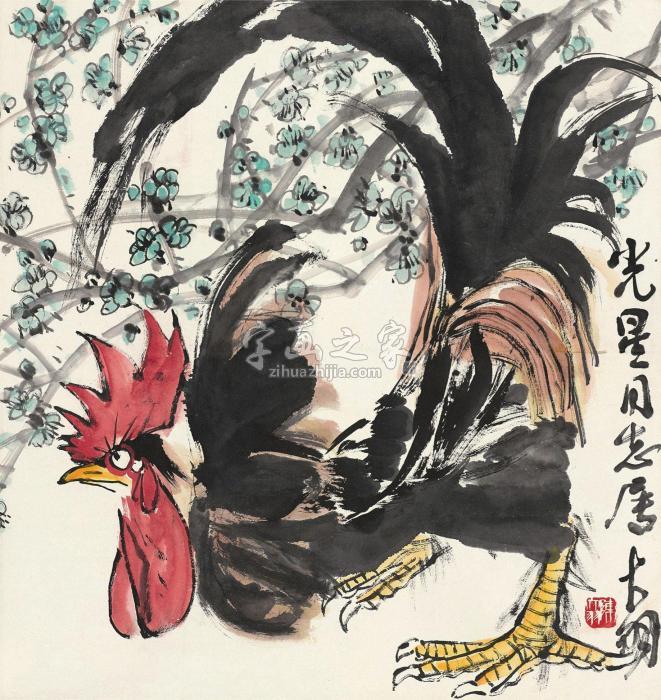 光星同志属大羽
字画之家
zihuazhijia.com